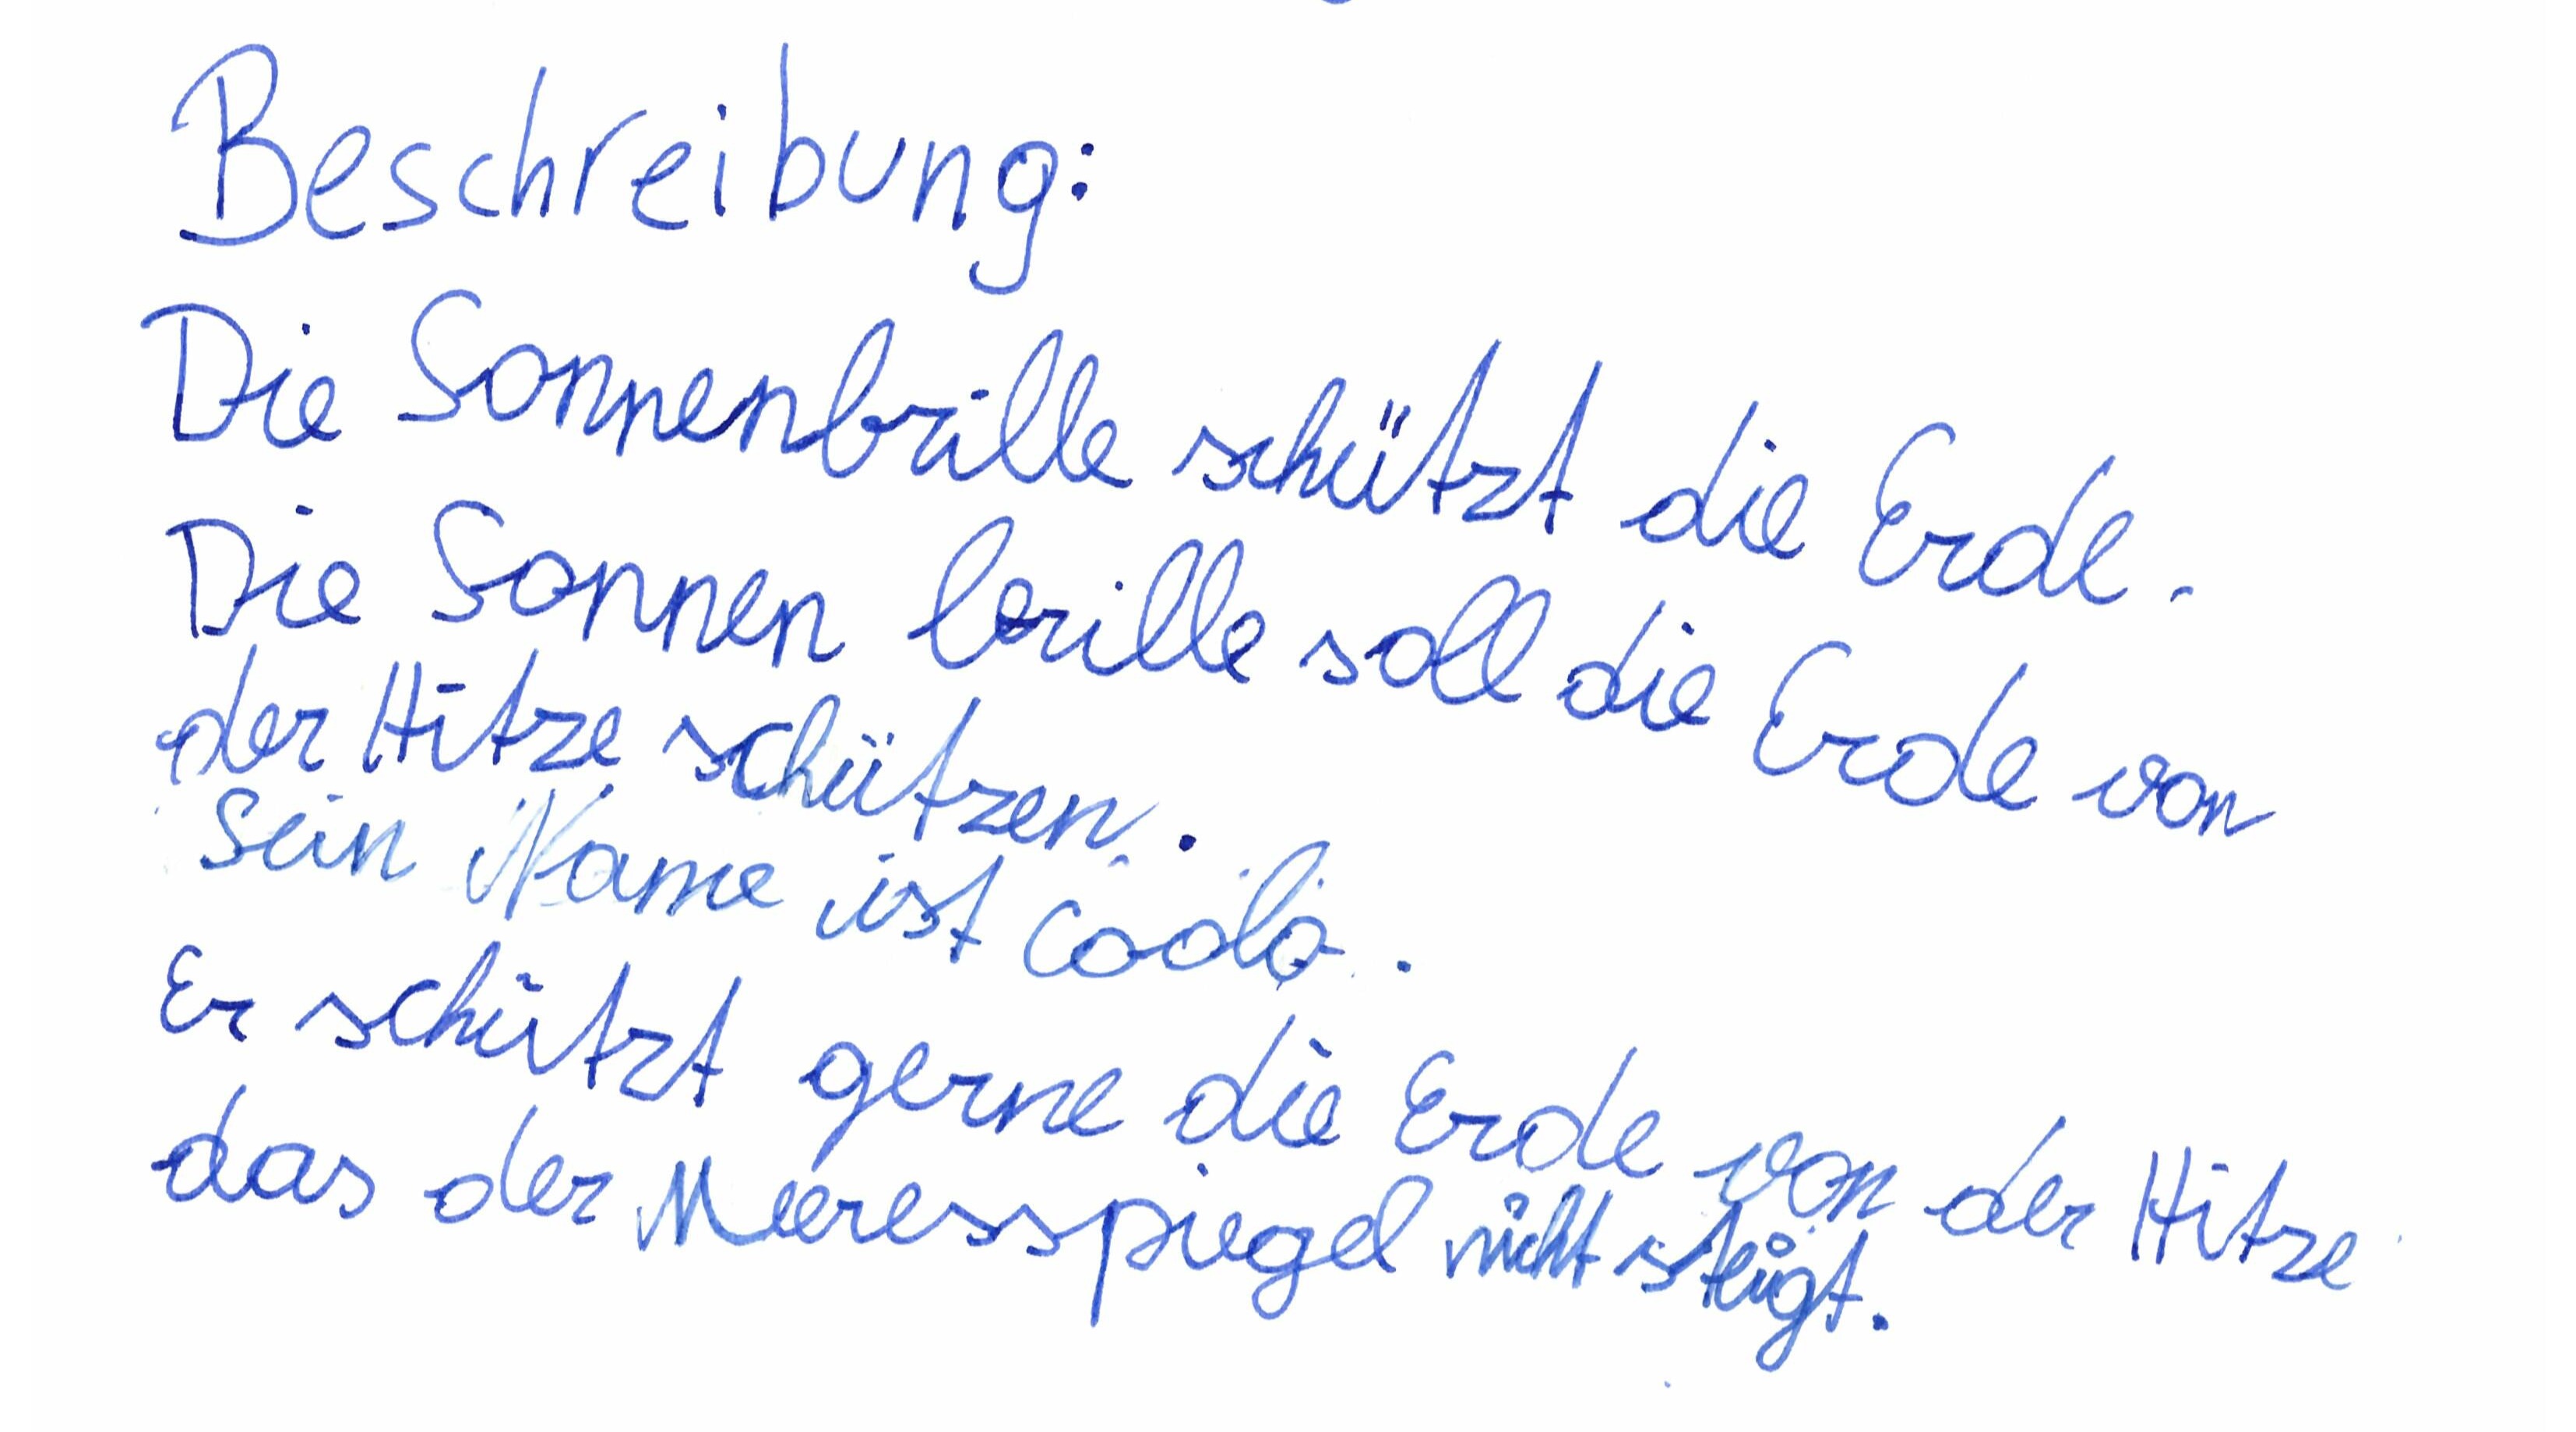 Beschreibung:
Die Sonnenbrille schützt die Erde.
Die Sonnen brille soll die Erde von
der Hitze schützen.
Sein Name ist coolo.
Er schützt gerne die Erde von der Hitze
das der Meeresspiegel nicht steigt.